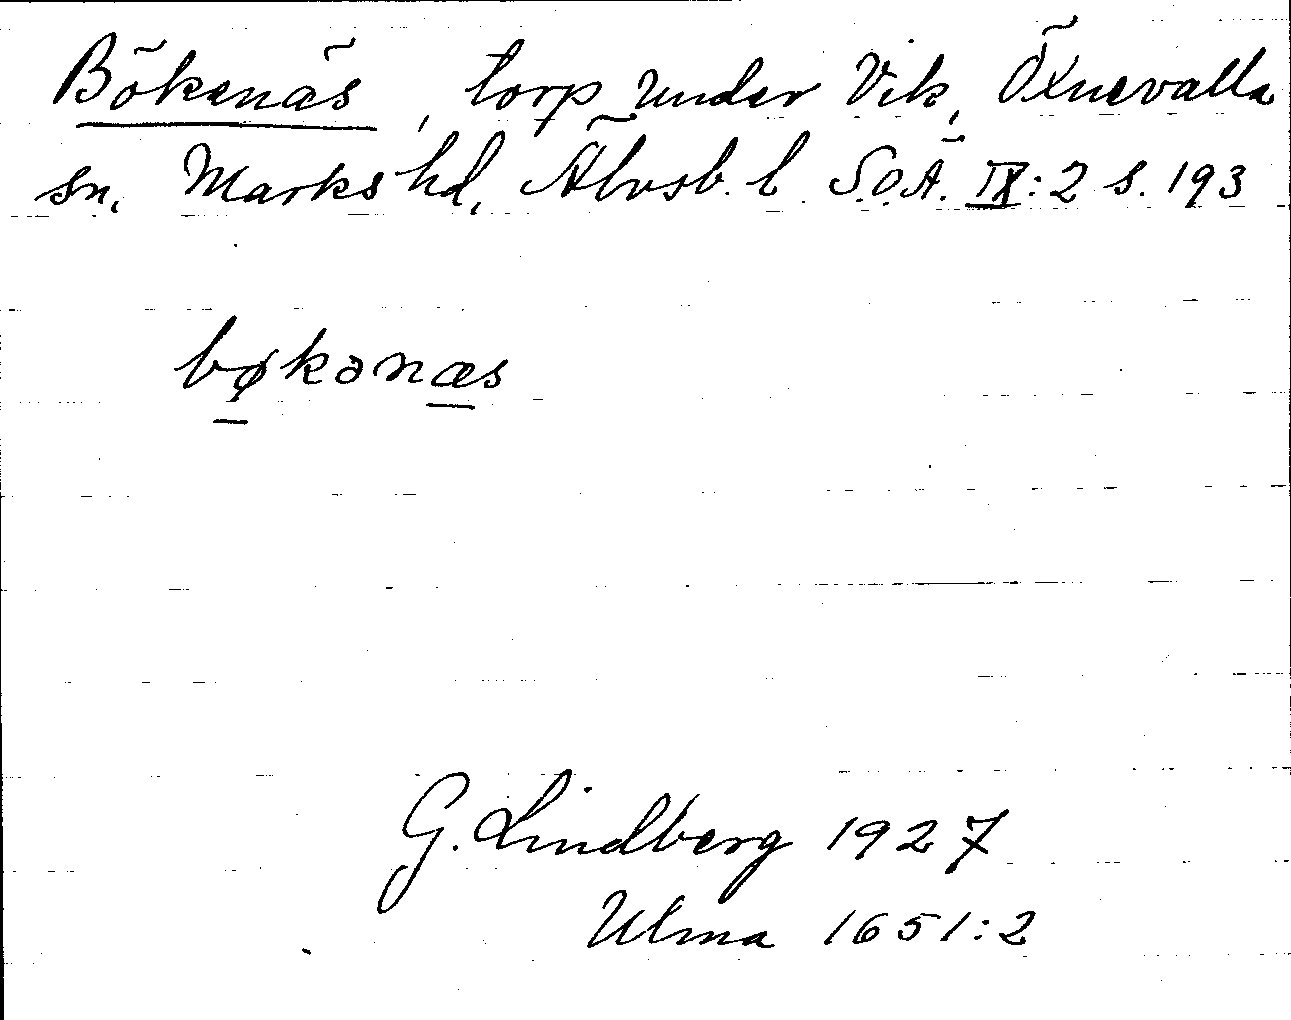 Bökenäs, torp under Vik, Öxnevalla
sn, Marks hd, Älvsb. l S.O.Ä. IX:2 s. 193
bøkənæs
G. Lindberg 1927
Ulma 1651:2